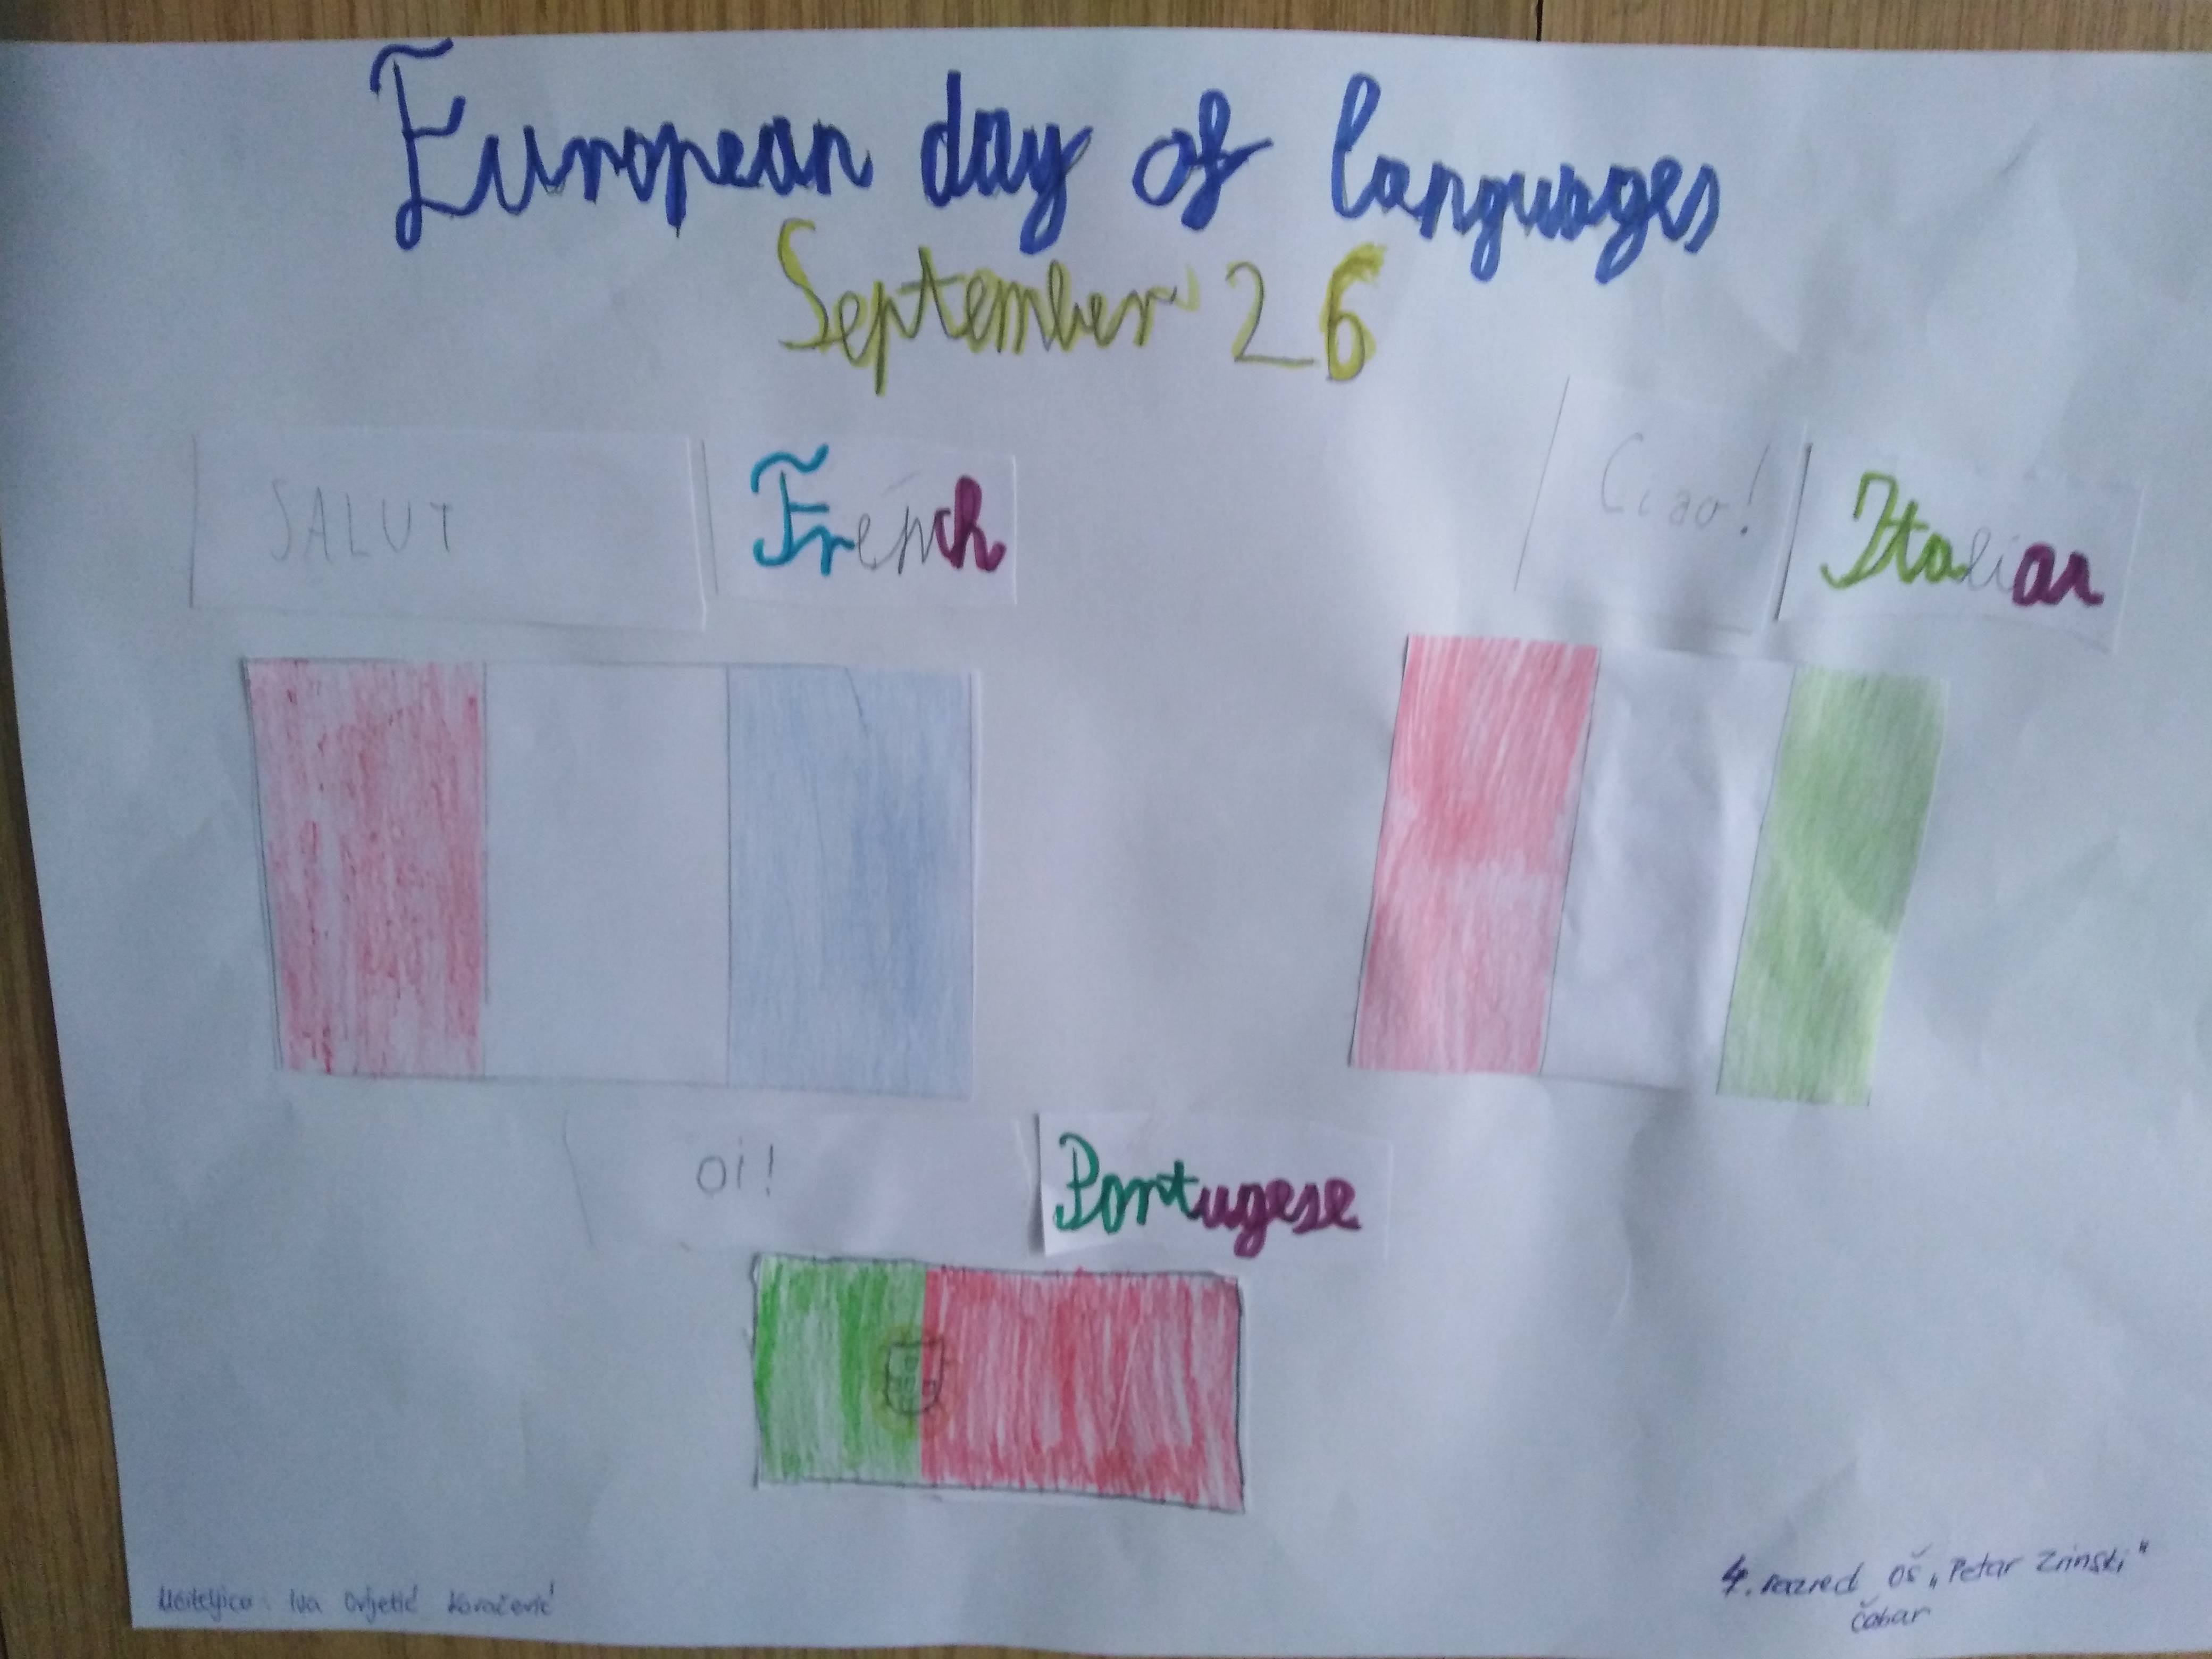 European day of languages
September 26
SALUT
French
Ciao!
Italian
Oi!
Portugese
4. razred OŠ „Petar Zrinski"
Čabar
Učiteljica: Iva Cvjetić